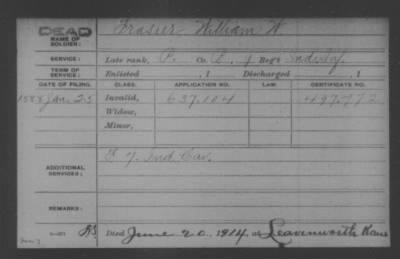 DEAD
NAME OF SOLDIER: Frasier William W.
SERVICE: Late rank, P. Co. Reg't Ind. Inf.
TERM OF SERVICE: Enlisted , 1 Discharged , 1
DATE OF FILING. CLASS. APPLICATION NO. LAW. CERTIFICATE NO.
1888 Jan. 25 Invalid, 637.104 497.772
Widow,
Minor,
ADDITIONAL SERVICES: Ind Cav.
REMARKS:
Died June 20, 1914, at Leavenworth Kans